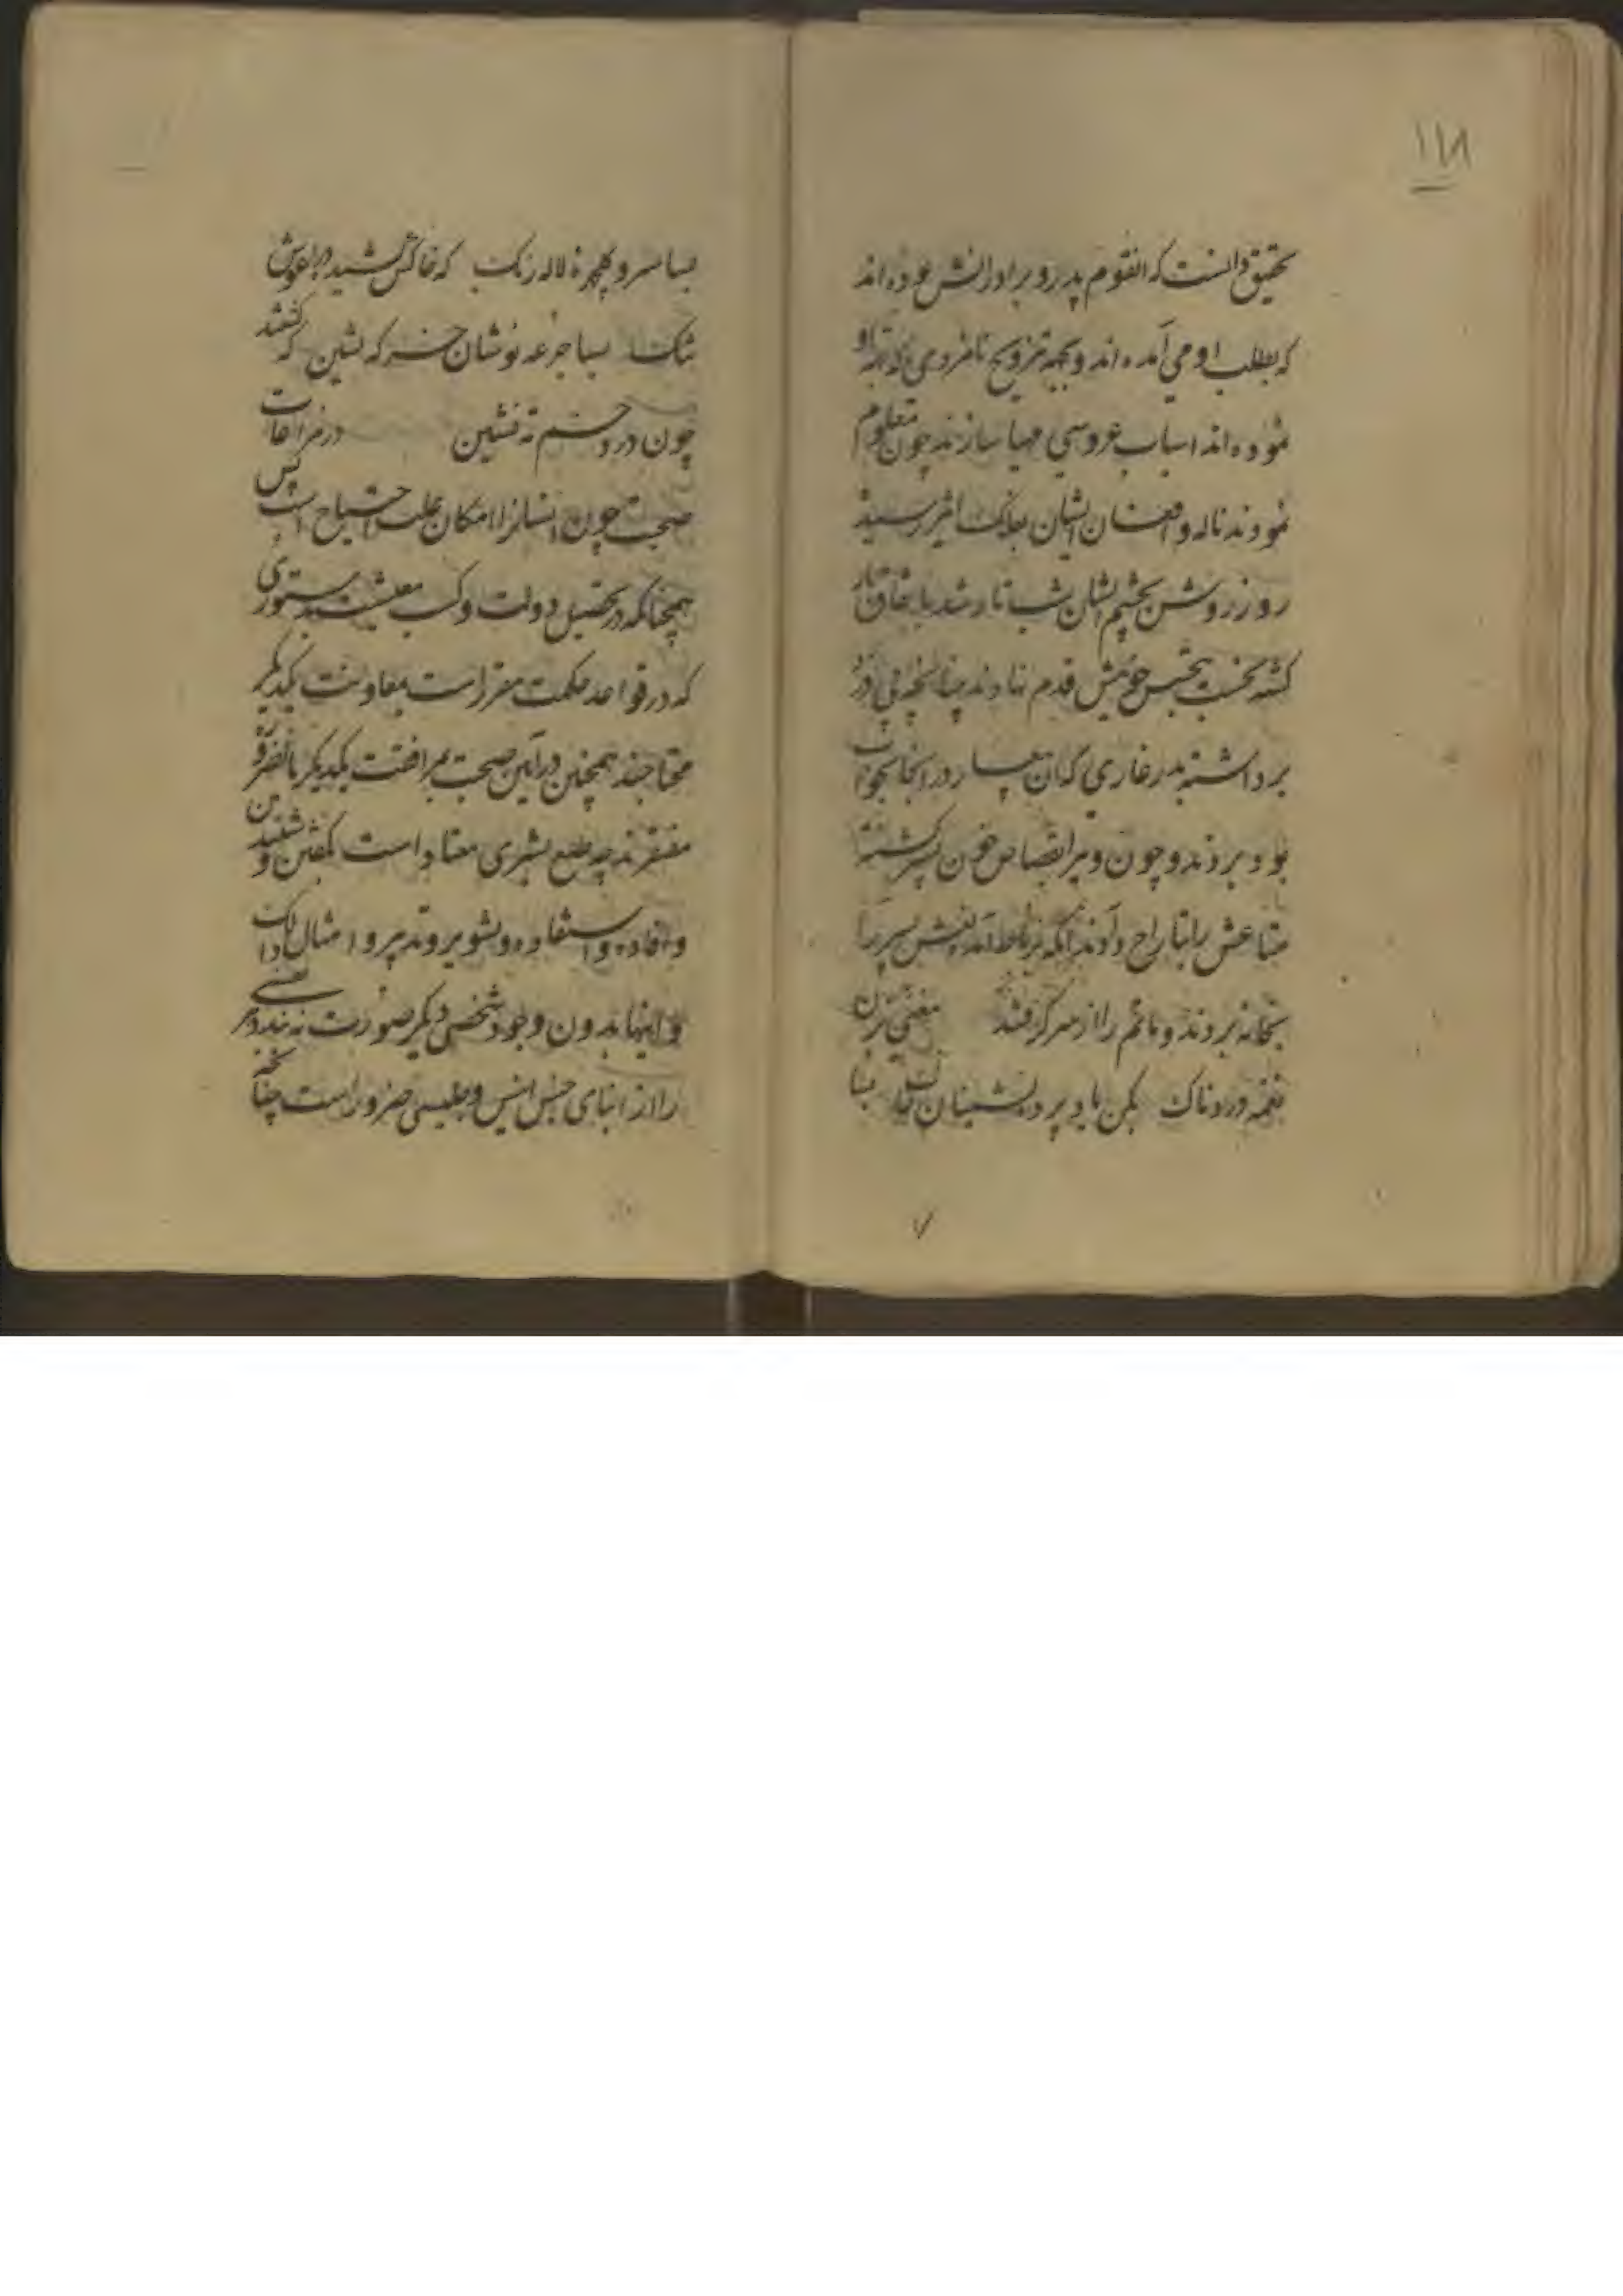 ۱۱۸
تحقیق دانست که انقوم پدر و برادرانش بوده اند
که بطلب او می آمده اند و بجهة تزویج نامزدی که بجهة او
نموده اند اسباب عروسی مهیا سازند چون معلوم
نمودند ناله و افغان ایشان بفلک اثیر رسید
روز روشن بچشم ایشان شب تار شد باتفاق
کشته بخت بتجسس خویش قدم نهادند چنانچه پی دزد
برداشته بدر غاری که آن در انجا بخواب
بود بردند و چون ویرا بقصاص خون پسر کشتند
متاعش را بتاراج دادند نعش پسر را
بخانه بردند و ماتم را از سر گرفتند مغنی بزن
نغمه دردناک بکن یاد پرده نشینان خاک
بسا سرو گلچهره لاله رنگ که خاکش کشید در اغوش
تنک بسا جرعه نوشان خرکه نشین که گشتند
چون درد خم ته نشین در مراعات
صحبت چون انسانرا امکان علت احتیاج است پس
همچنانکه در تحصیل دولت و کسب معیشت بدستوری
که در قواعد حکمت مقرر است بمعاونت یکدیگر
محتاجند همچنین در آیین صحبت بمرافقت یکدیگر بالضروره
مفتقرند چه طبع بشری معتاد است بگفتن و شنیدن
و افاده و استفاده و تشویر و تدبیر و امثال ذالک
و اینها بدون وجود شخصی دیگر صورت نه بندد
را از ابنای جنس انیس و جلیسی ضرور است چنانچه